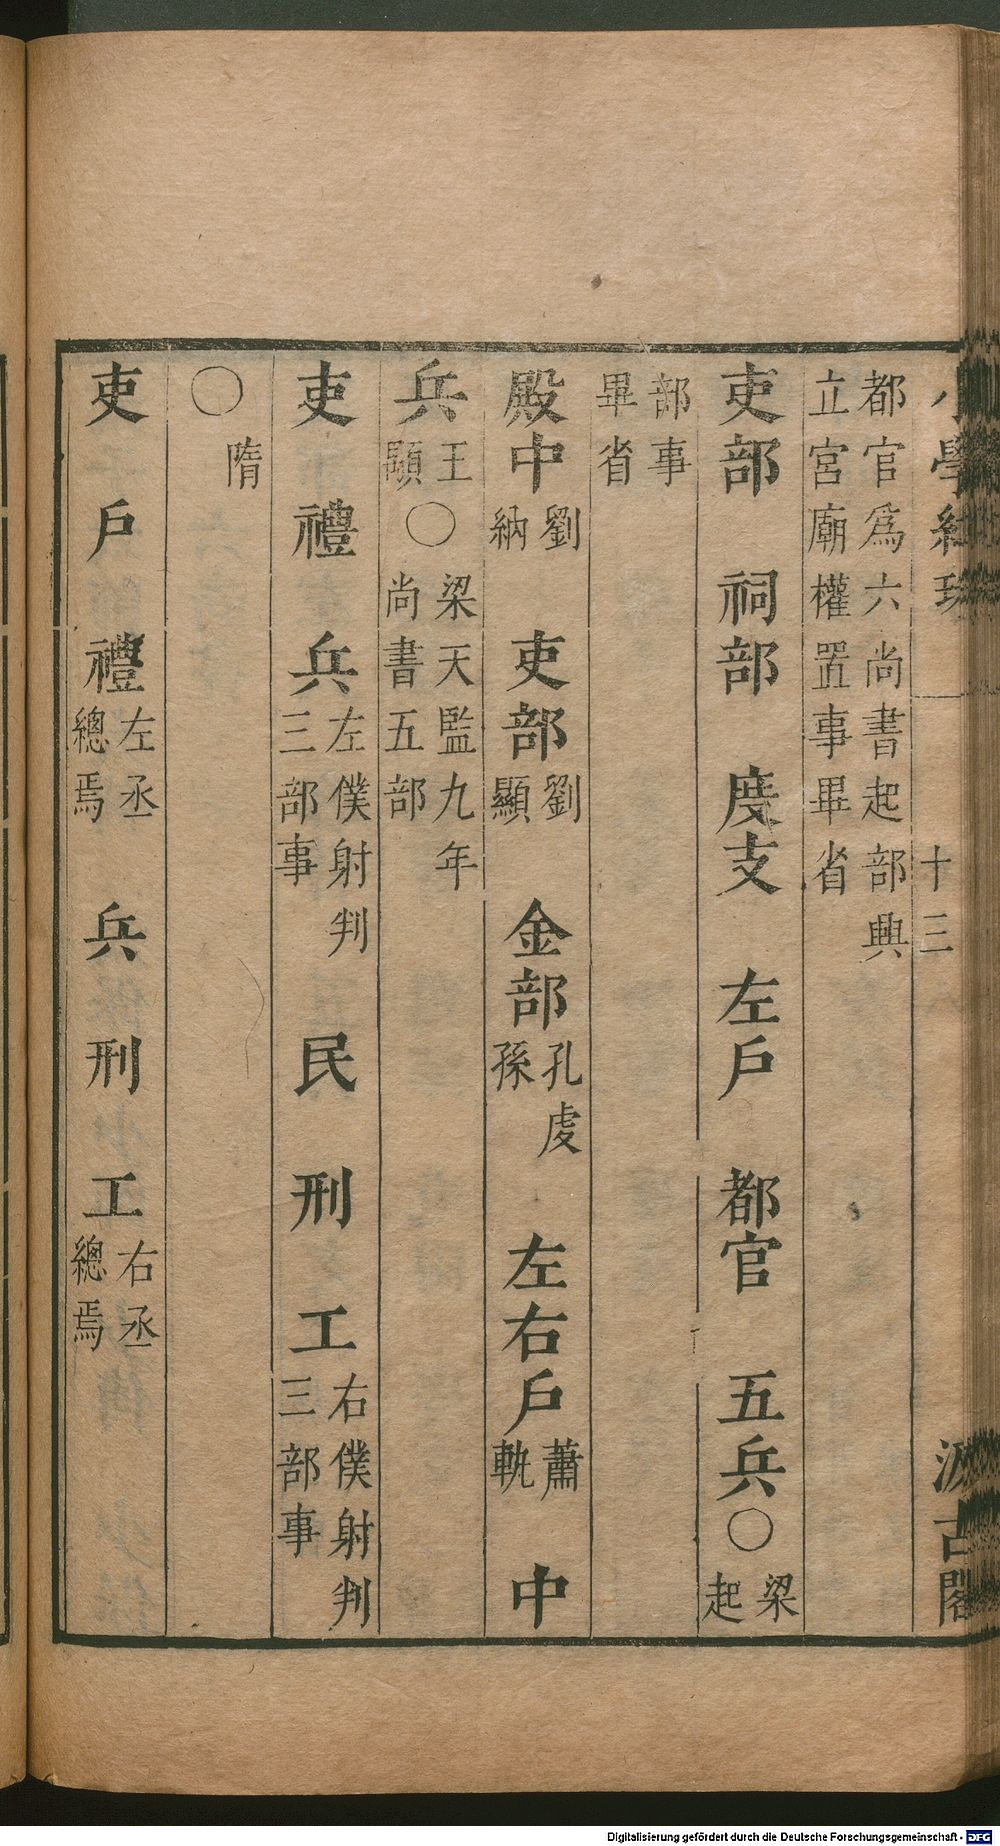 小學紺珠　十三　汲古閣
都官爲六尚書起部興
立宮廟權置事畢省
吏部　祠部　度支　左戶　都官　五兵〇梁起
部事
畢省
殿中劉納　吏部劉顯　金部孔虔孫　左右戶蕭軌　中
兵王顒〇梁天監九年尚書五部
吏　禮　兵左僕射判三部事　民　刑　工右僕射判三部事
〇隋
吏　戶　禮左丞總焉　兵　刑　工右丞總焉
Digitalisierung gefördert durch die Deutsche Forschungsgemeinschaft - DFG